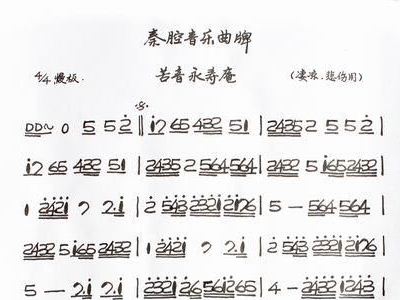 秦腔音乐曲牌
苦音永寿庵
4/4 慢板. (凄凉.悲伤用)
DD~ 0 5 5 2 ‖ i2 65 432 51 | 2435 2 5 5 2 |
i2 65 432 51 | 2435 2 564 564 | 2432 5 i65 2432 |
1 2421 7 2.i | 2 543 2321 2176 | 5 — 564 564 |
2432 5 i65 2432 | 1 2421 7 2.i | 2 543 2321 2176 |
5 — 2.i 2.i | 2321 26 561265 | 4 — 2432 1243 |